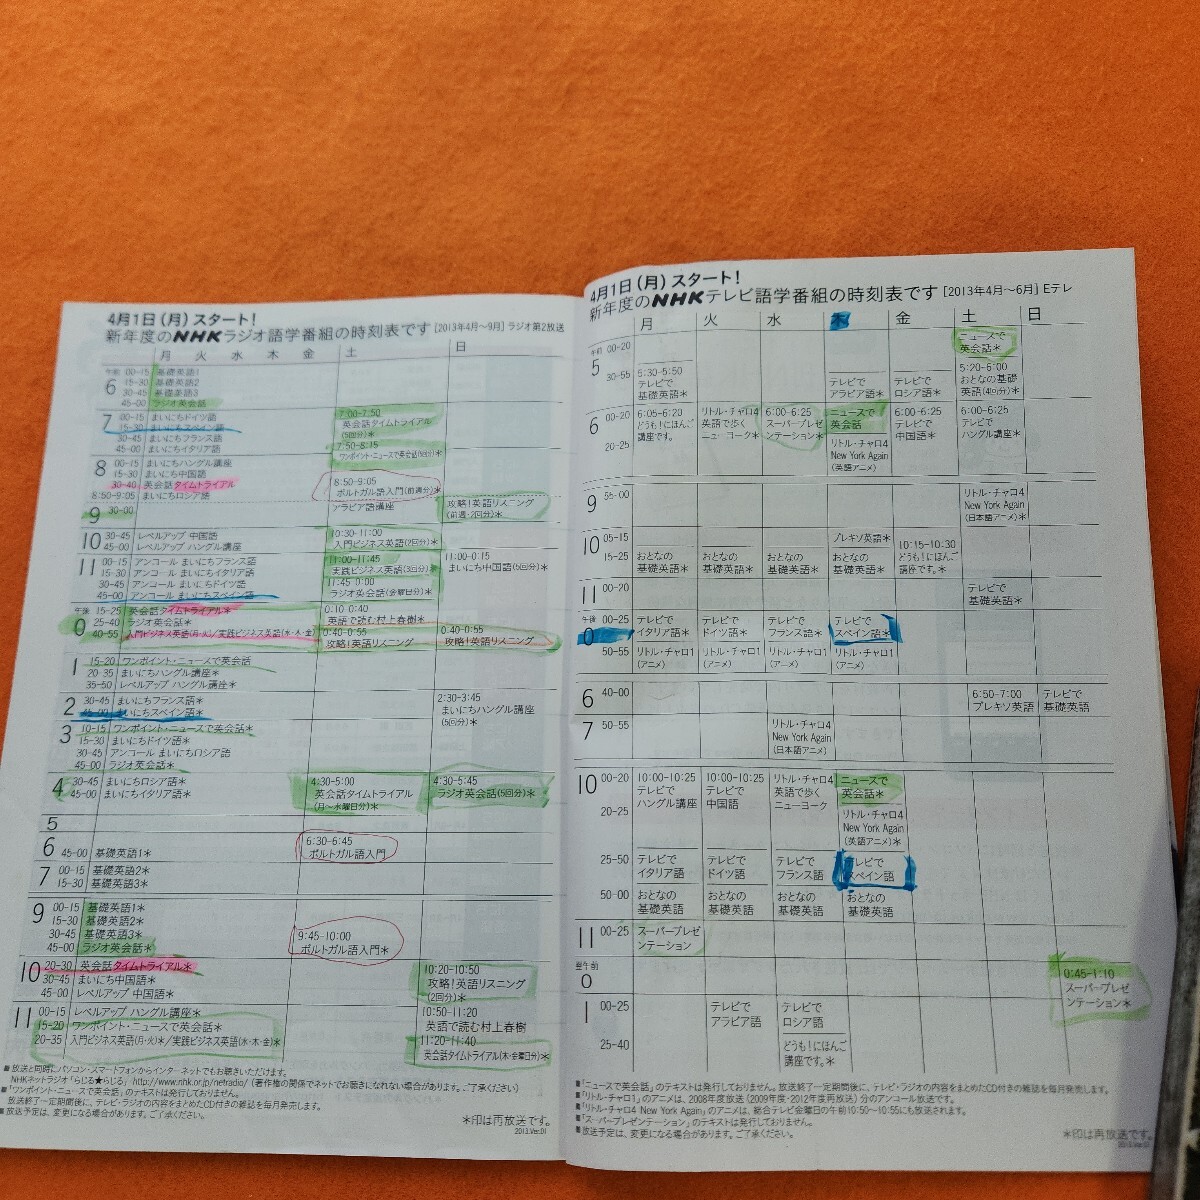 4月1日(月)スタート!
新年度のNHKラジオ語学番組の時刻表です [2013年4月~9月] ラジオ第2放送
月 火 水 木 金 土 日
午前
6
00-15 基礎英語1
15-30 基礎英語2
30-45 基礎英語3
45-00 ラジオ英会話
7
00-15 まいにちドイツ語
15-30 まいにちスペイン語
30-45 まいにちフランス語
45-00 まいにちイタリア語
7:00-7:50
英会話タイムトライアル
(5回分)*
7:50-8:15
ワンポイント・ニュースで英会話(5回分)*
8
00-15 まいにちハングル講座
15-30 まいにち中国語
30-40 英会話タイムトライアル
8:50-9:05 まいにちロシア語
8:50-9:05
ポルトガル語入門(前週分)*
9
30-00
アラビア語講座
攻略!英語リスニング
(前週・2回分)*
10
30-45 レベルアップ 中国語
45-00 レベルアップ ハングル講座
10:30-11:00
入門ビジネス英語(2回分)*
11
00-15 アンコール まいにちフランス語
15-30 アンコール まいにちイタリア語
30-45 アンコール まいにちドイツ語
45-00 アンコール まいにちスペイン語
11:00-11:45
実践ビジネス英語(3回分)*
11:45-0:00
ラジオ英会話(金曜日分)*
11:00-0:15
まいにち中国語(5回分)*
午後
0
15-25 英会話タイムトライアル*
25-40 ラジオ英会話*
40-55 入門ビジネス英語(月・火)/実践ビジネス英語(水・木・金)
0:10-0:40
英語で読む村上春樹*
0:40-0:55
攻略!英語リスニング
0:40-0:55
攻略!英語リスニング
1
15-20 ワンポイント・ニュースで英会話
20-35 まいにちハングル講座*
35-50 レベルアップ ハングル講座*
2
30-45 まいにちフランス語*
45-00 まいにちスペイン語*
2:30-3:45
まいにちハングル講座
(5回分)*
3
10-15 ワンポイント・ニュースで英会話*
15-30 まいにちドイツ語*
30-45 アンコール まいにちロシア語
45-00 ラジオ英会話*
4
30-45 まいにちロシア語*
45-00 まいにちイタリア語*
4:30-5:00
英会話タイムトライアル
(月~水曜日分)*
4:30-5:45
ラジオ英会話(5回分)*
5
6
45-00 基礎英語1*
6:30-6:45
ポルトガル語入門
7
00-15 基礎英語2*
15-30 基礎英語3*
9
00-15 基礎英語1*
15-30 基礎英語2*
30-45 基礎英語3*
45-00 ラジオ英会話*
9:45-10:00
ポルトガル語入門*
10
20-30 英会話タイムトライアル*
30-45 まいにち中国語*
45-00 レベルアップ 中国語*
10:20-10:50
攻略!英語リスニング
(2回分)*
11
00-15 レベルアップ ハングル講座*
15-20 ワンポイント・ニュースで英会話*
20-35 入門ビジネス英語(月・火)*/実践ビジネス英語(水・木・金)*
10:50-11:20
英語で読む村上春樹
11:20-11:40
英会話タイムトライアル(木・金曜日分)*
■放送と同時にパソコン・スマートフォンからインターネットでもお聴きいただけます。
NHKネットラジオ「らじる★らじる」 http://www.nhk.or.jp/netradio/ (著作権の関係でネットでお聴きになれない場合があります。ご了承ください)
■「ワンポイント・ニュースで英会話」のテキストは発行しておりません。
放送終了一定期間後に、テレビ・ラジオの内容をまとめたCD付きの雑誌を毎月発売します。
■放送予定は、変更になる場合があります。ご了承ください。
*印は再放送です。
2013.Ver.01
4月1日(月)スタート!
新年度のNHKテレビ語学番組の時刻表です [2013年4月~6月] Eテレ
月 火 水 木 金 土 日
午前
5
00-20
ニュースで
英会話*
30-55
5:30-5:50
テレビで
基礎英語
テレビで
アラビア語*
テレビで
ロシア語*
5:20-6:00
おとなの基礎
英語(4回分)*
6
00-20
20-25
6:05-6:20
どうも!にほんご
講座です。
リトル・チャロ4
英語で歩く
ニューヨーク*
6:00-6:25
スーパープレゼ
ンテーション*
ニュースで
英会話
リトル・チャロ4
New York Again
(英語アニメ)
6:00-6:25
テレビで
中国語*
6:00-6:25
テレビで
ハングル講座*
9
55-00
リトル・チャロ4
New York Again
(日本語アニメ)*
10
05-15
プレキソ英語*
15-25
おとなの
基礎英語*
おとなの
基礎英語*
おとなの
基礎英語*
おとなの
基礎英語*
10:15-10:30
どうも!にほんご
講座です。*
11
00-20
テレビで
基礎英語*
午後
0
00-25
テレビで
イタリア語*
テレビで
ドイツ語*
テレビで
フランス語*
テレビで
スペイン語*
50-55
リトル・チャロ1
(アニメ)
リトル・チャロ1
(アニメ)
リトル・チャロ1
(アニメ)
リトル・チャロ1
(アニメ)
6
40-00
6:50-7:00
プレキソ英語
テレビで
基礎英語
7
50-55
リトル・チャロ4
New York Again
(日本語アニメ)
10
00-20
20-25
10:00-10:25
テレビで
ハングル講座
10:00-10:25
テレビで
中国語
リトル・チャロ4
英語で歩く
ニューヨーク
ニュースで
英会話*
リトル・チャロ4
New York Again
(英語アニメ)*
25-50
テレビで
イタリア語
テレビで
ドイツ語
テレビで
フランス語
テレビで
スペイン語
50-00
おとなの
基礎英語
おとなの
基礎英語
おとなの
基礎英語
おとなの
基礎英語
11
00-25
スーパープレゼ
ンテーション
翌午前
0
0:45-1:10
スーパープレゼ
ンテーション*
1
00-25
テレビで
アラビア語
テレビで
ロシア語
25-40
どうも!にほんご
講座です。*
■「ニュースで英会話」のテキストは発行しておりません。放送終了一定期間後に、テレビ・ラジオの内容をまとめたCD付きの雑誌を毎月発売します。
■「リトル・チャロ1」のアニメは、2008年度放送(2009年度・2012年度再放送)分のアンコール放送です。
■「リトル・チャロ4 New York Again」のアニメは、総合テレビ金曜日の午前10:50~10:55にも放送されます。
■「スーパープレゼンテーション」のテキストは発行しておりません。
■放送予定は、変更になる場合があります。ご了承ください。
*印は再放送です。
2013.Ver.01